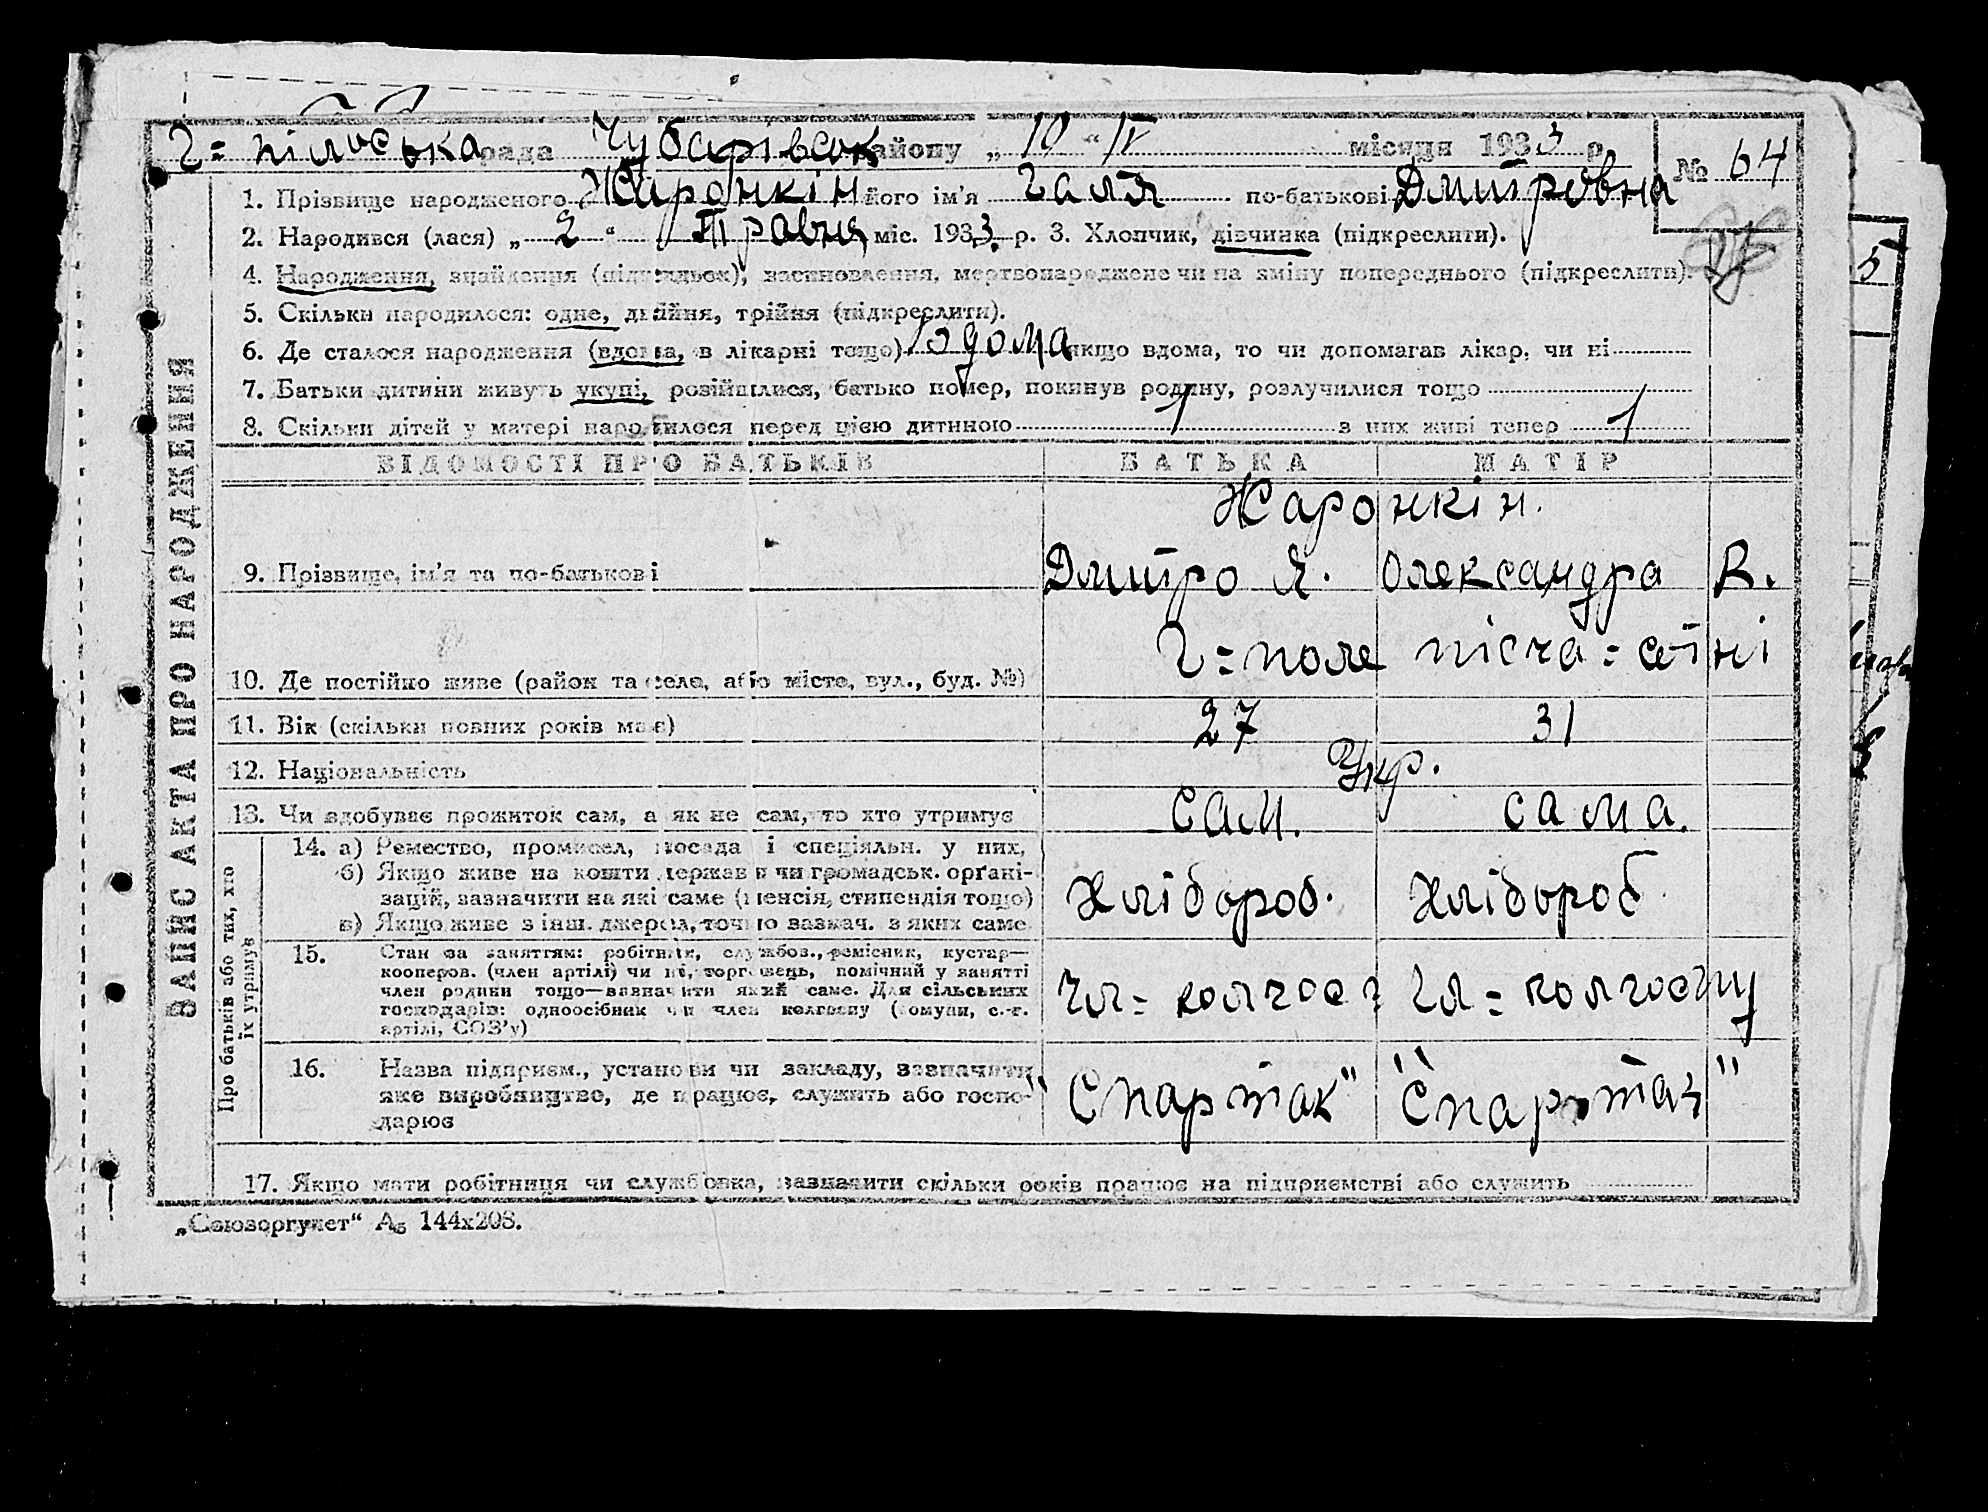 Г= пільська рада Чубарівськ району „ 10 “ IV місяця 1933 р. № 64
1. Прізвище народженого Жаронкін його ім'я Галя по-батькові Дмитровна
2. Народився (лася) „ 2 “ Травня міс. 1933 р. 3. Хлопчик, дівчинка (підкреслити).
4. Народження, знайдення (підкидьок), всиновлення, мертвонароджене чи на зміну попереднього (підкреслити).
5. Скільки народилося: одне, двійня, трійня (підкреслити).
6. Де сталося народження (вдома, в лікарні тощо) дома якщо вдома, то чи допомагав лікар, чи ні
7. Батьки дитини живуть укупі, розійшлися, батько помер, покинув родину, розлучилися тощо
8. Скільки дітей у матері народилося перед цією дитиною 1 з них живі тепер 1
ЗАПИС АКТА ПРО НАРОДЖЕННЯ
ВІДОМОСТІ ПРО БАТЬКІВ БАТЬКА МАТІР
Жаронкін.
9. Прізвище, ім'я та по-батькові Дмитро Я. Олександра В.
10. Де постійно живе (район та село, або місто, вул., буд. №) Г=поле
11. Вік (скільки повних років має) 27 31
12. Національність Укр.
13. Чи здобуває прожиток сам, а як не сам, то хто утримує сам. сама.
Про батьків або тих, хто їх утримує
14. а) Ремество, промисел, посада і спеціяльн. у них,
б) Якщо живе на кошти держави чи громадськ. орґані-
зацій, зазначити на які саме (пенсія, стипендія тощо) Хлібороб. Хлібороб
в) Якщо живе з інш. джерел, точно зазнач. з яких саме
15. Стан за заняттям: робітник, службов., ремісник, кустар—
кооперов. (член артілі) чи ні, торговець, помічний у занятті
член родини тощо—зазначити який саме. Для сільських
господарів: одноосібник чи член колгоспу (комуни, с.-г.
артілі, СОЗ'у) Чл= колгосп Чл= колгоспу
16. Назва підприєм., установи чи закладу, зазначити
яке виробництво, де працює, служить або госпо-
дарює "Спартак" "Спартак"
17. Якщо мати робітниця чи службовка, зазначити скільки років працює на підприємстві або служить
„Союзоргучет“ А5 144х208.
5